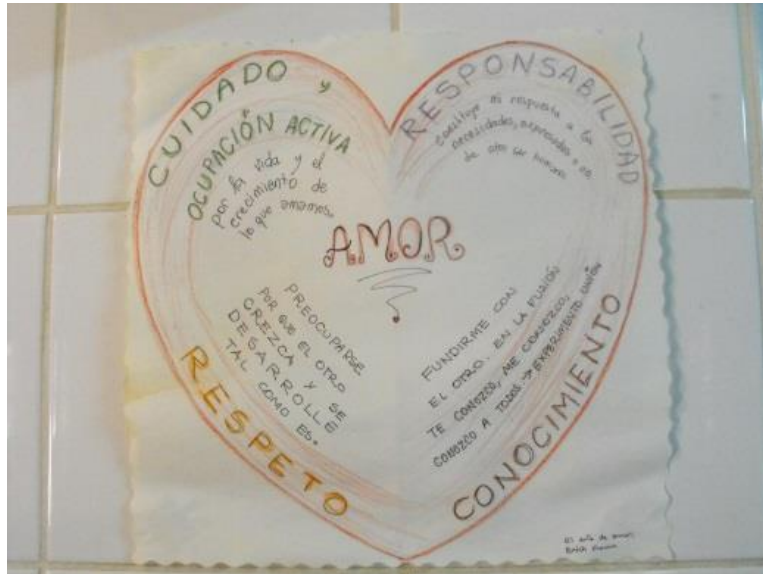 CUIDADO y
OCUPACIÓN ACTIVA
por la vida y el
crecimiento de
lo que amamos.
RESPONSABILIDAD
Constituye mi respuesta a las
necesidades, expresadas o no
de otro ser humano
AMOR
PREOCUPARSE
POR QUE EL OTRO
CREZCA Y SE
DESARROLLE
TAL COMO ES.
RESPETO
FUNDIRME CON
EL OTRO. EN LA FUSIÓN
TE CONOZCO, ME CONOZCO,
CONOZCO A TODOS → EXPERIMENTO UNIÓN
CONOCIMIENTO
El arte de amar
Erich Fromm